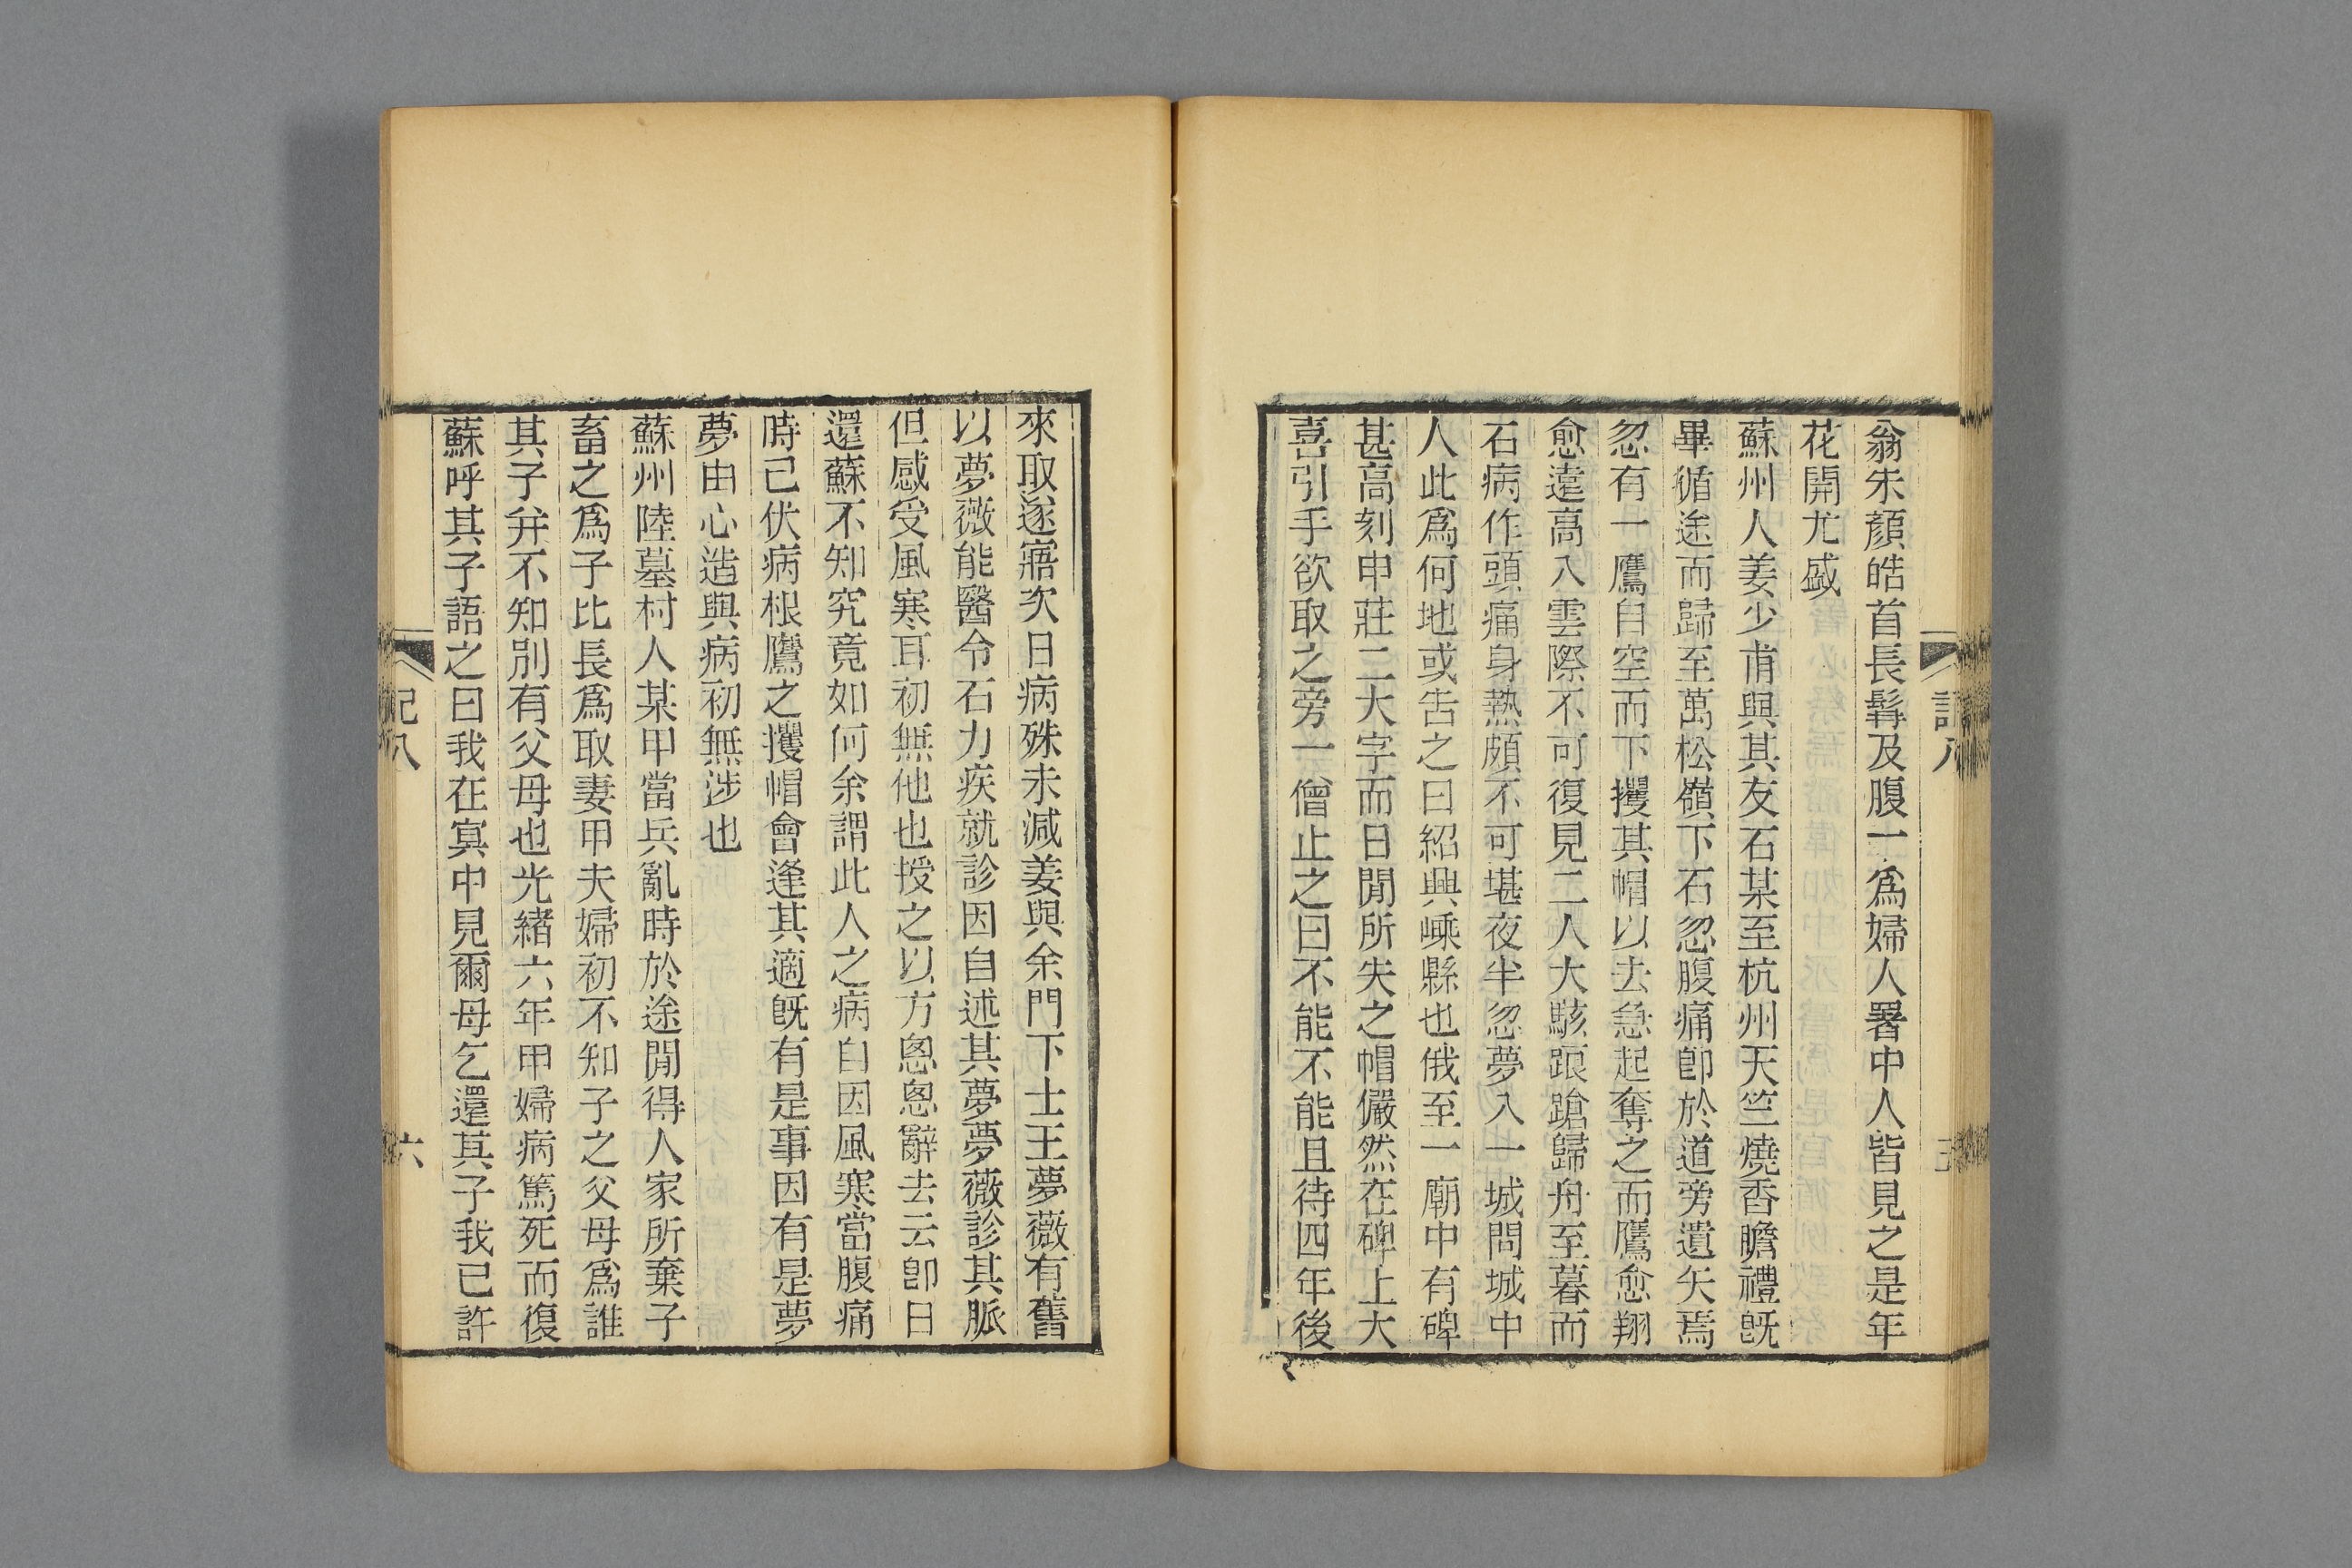 翁朱顏皓首長髯及腹一爲婦人署中人皆見之是年
花開尤盛
蘇州人姜少甫與其友石某至杭州天竺燒香瞻禮旣
畢循途而歸至萬松嶺下石忽腹痛卽於道旁遺矢焉
忽有一鷹自空而下攫其帽以去急起奪之而鷹愈翔
愈遠高入雲際不可復見二人大駭踉蹌歸舟至暮而
石病作頭痛身熱頗不可堪夜半忽夢入一城問城中
人此爲何地或告之曰紹興嵊縣也俄至一廟中有碑
甚高刻申莊二大字而日閒所失之帽儼然在碑上大
喜引手欲取之旁一僧止之曰不能不能且待四年後
來取遂寤次日病殊未減姜與余門下士王夢薇有舊
以夢薇能醫令石力疾就診因自述其夢夢薇診其脈
但感受風寒耳初無他也授之以方悤悤辭去云卽日
還蘇不知究竟如何余謂此人之病自因風寒當腹痛
時已伏病根鷹之攫帽會逢其適旣有是事因有是夢
夢由心造與病初無涉也
蘇州陸墓村人某甲當兵亂時於途閒得人家所棄子
畜之爲子比長爲取妻甲夫婦初不知子之父母爲誰
其子幷不知別有父母也光緒六年甲婦病篤死而復
蘇呼其子語之曰我在冥中見爾母乞還其子我已許
記八
六